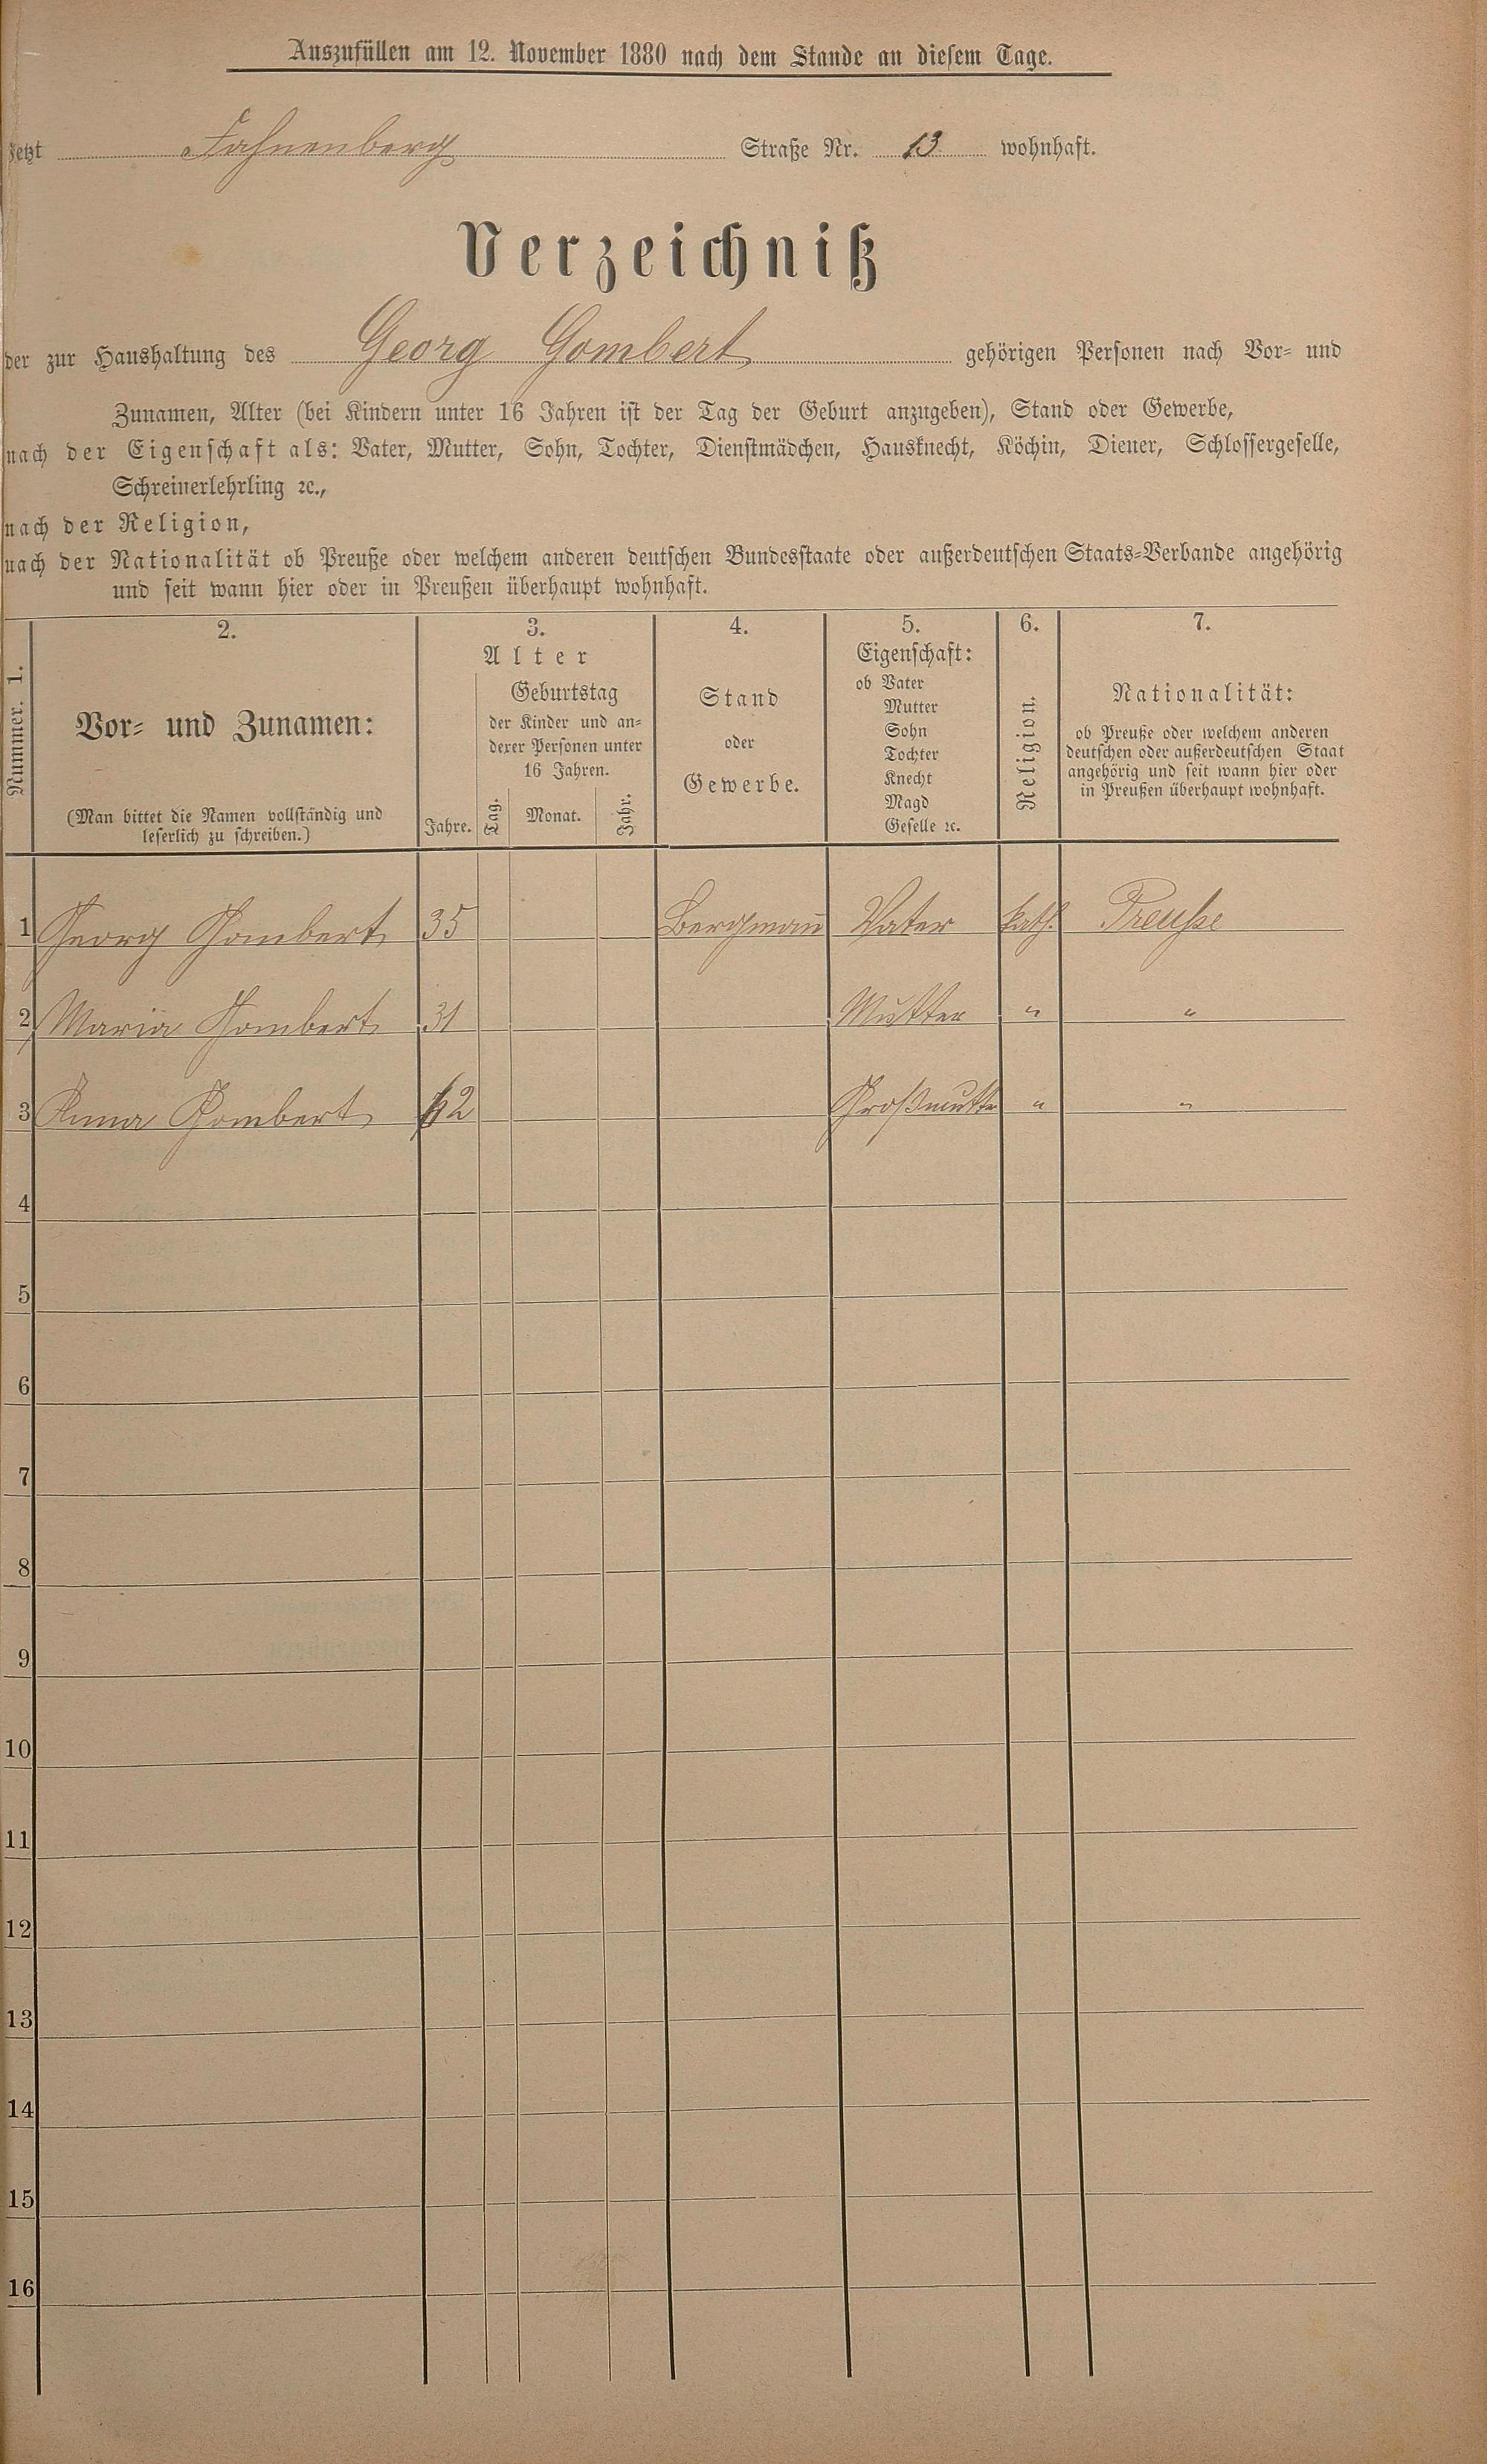 Auszufüllen am 12. November 1880 nach dem Stande an diesem Tage.
Jetzt Fahnenberg Straße Nr. 13 wohnhaft.
Verzeichniß
der zur Haushaltung des Georg Gombert gehörigen Personen nach Vor- und
Zunamen, Alter (bei Kindern unter 16 Jahren ist der Tag der Geburt anzugeben), Stand oder Gewerbe,
nach der Eigenschaft als: Vater, Mutter, Sohn, Tochter, Dienstmädchen, Hausknecht, Köchin, Diener, Schlossergeselle,
Schreinerlehrling ꝛc.,
nach der Religion,
nach der Nationalität ob Preuße oder welchem anderen deutschen Bundesstaate oder außerdeutschen Staats-Verbande angehörig
und seit wann hier oder in Preußen überhaupt wohnhaft.
Nummer. 1.
2.
Vor- und Zunamen:
(Man bittet die Namen vollständig und
leserlich zu schreiben.)
3.
Alter
Jahre.
Geburtstag
der Kinder und an-
derer Personen unter
16 Jahren.
Tag. Monat. Jahr.
4.
Stand
oder
Gewerbe.
5.
Eigenschaft:
ob Vater
Mutter
Sohn
Tochter
Knecht
Magd
Geselle ꝛc.
6.
Religion.
7.
Nationalität:
ob Preuße oder welchem anderen
deutschen oder außerdeutschen Staat
angehörig und seit wann hier oder
in Preußen überhaupt wohnhaft.
1 Georg Gombert 35 Bergmañ Vater kath. Preuße
2 Maria Gombert 31 Mutter " "
3 Anna Gombert 62 Großmutter " "
4
5
6
7
8
9
10
11
12
13
14
15
16